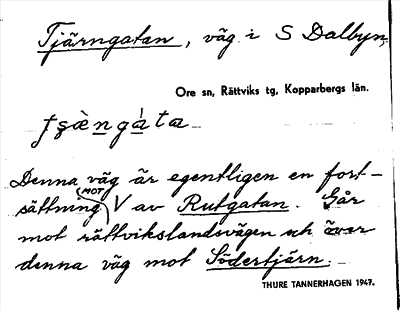 Tjärngatan, väg i S Dalbyn,
Ore sn, Rättviks tg, Kopparbergs län.
tşæ̀ngáta
Denna väg är egentligen en fort-
sättning MOT V av Rutgatan. Går
mot rättvikslandsvägen och över
denna väg mot Södertjärn.
THURE TANNERHAGEN 1947.